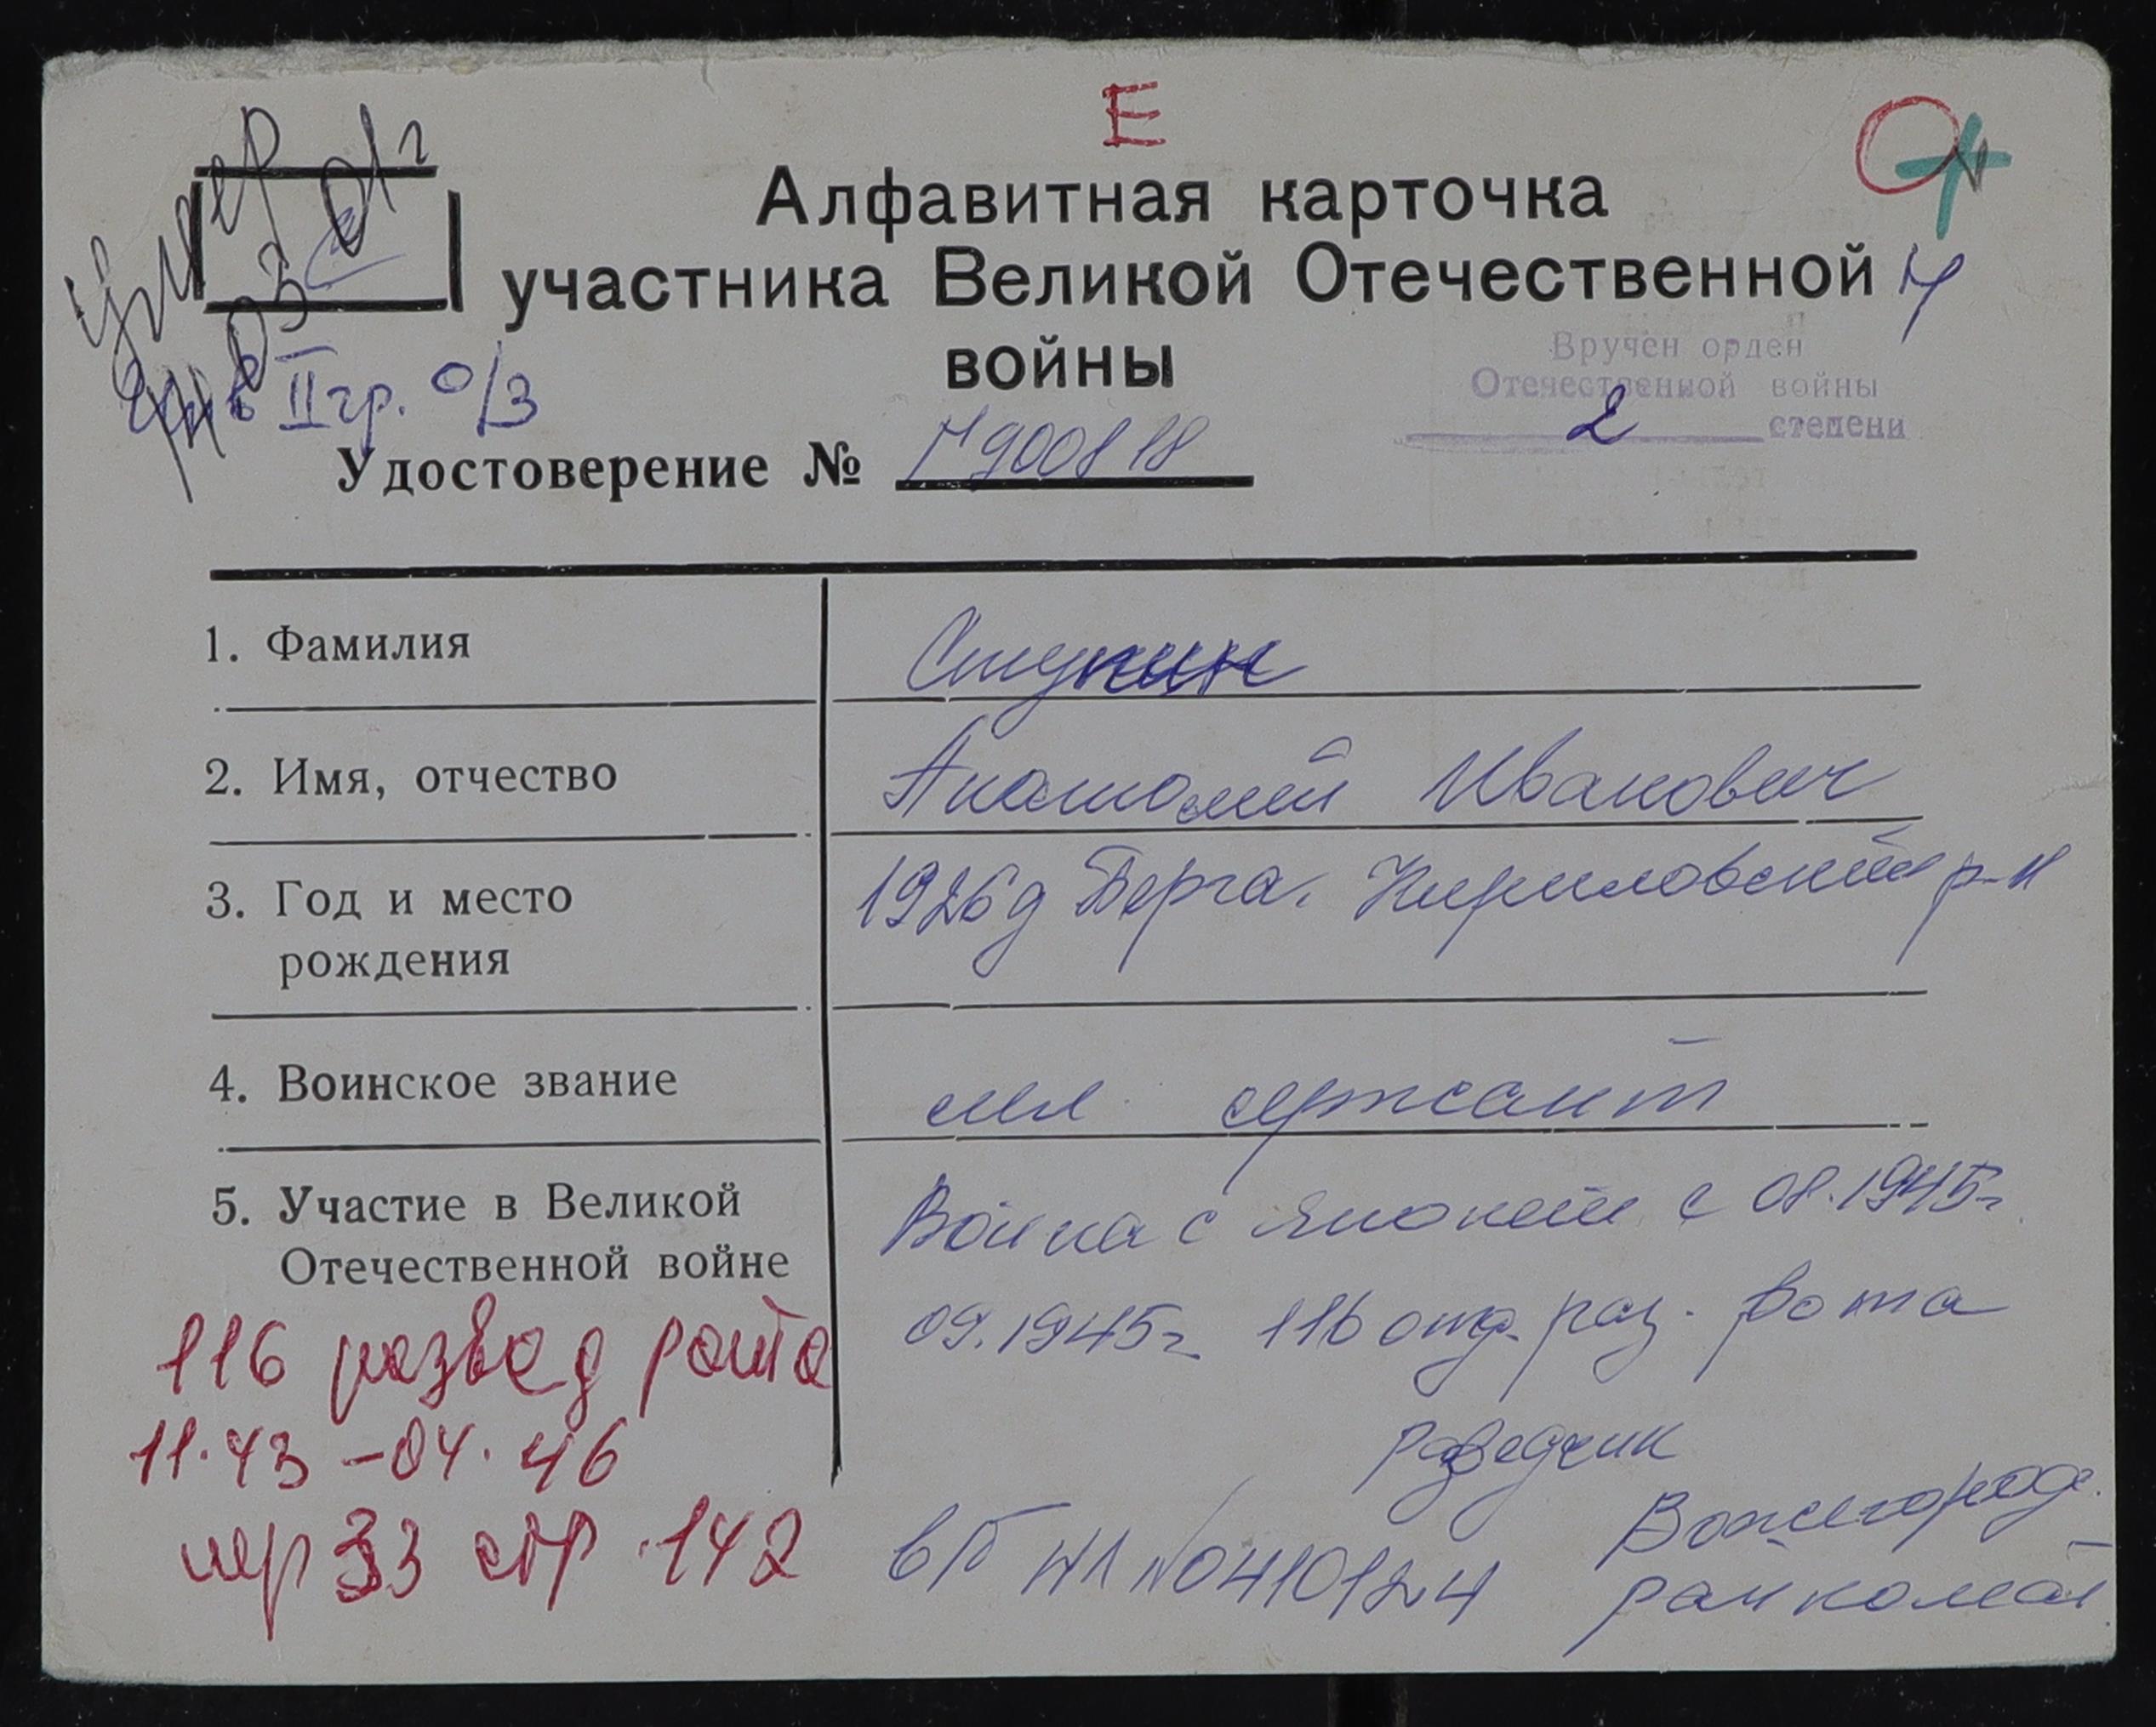 Е
Умер
03 01 г
Алфавитная карточка
участника Великой Отечественной
войны
Вручен орден
Отечественной войны
2 степени
инв II гр. о/з
Удостоверение № Г 900818
1. Фамилия Ступин
2. Имя, отчество Анатолий Иванович
3. Год и место 1926 д Верга. Кириловский р-н
рождения
4. Воинское звание мл сержант
5. Участие в Великой Война с Японией с 08.1945г
Отечественной войне 09.1945г 116 отд. раз. рота
116 развед рота
разведчик
11.43 - 04.46
пер 33 стр 142
в/б НА № 0410124 Вожегород.
райкомат